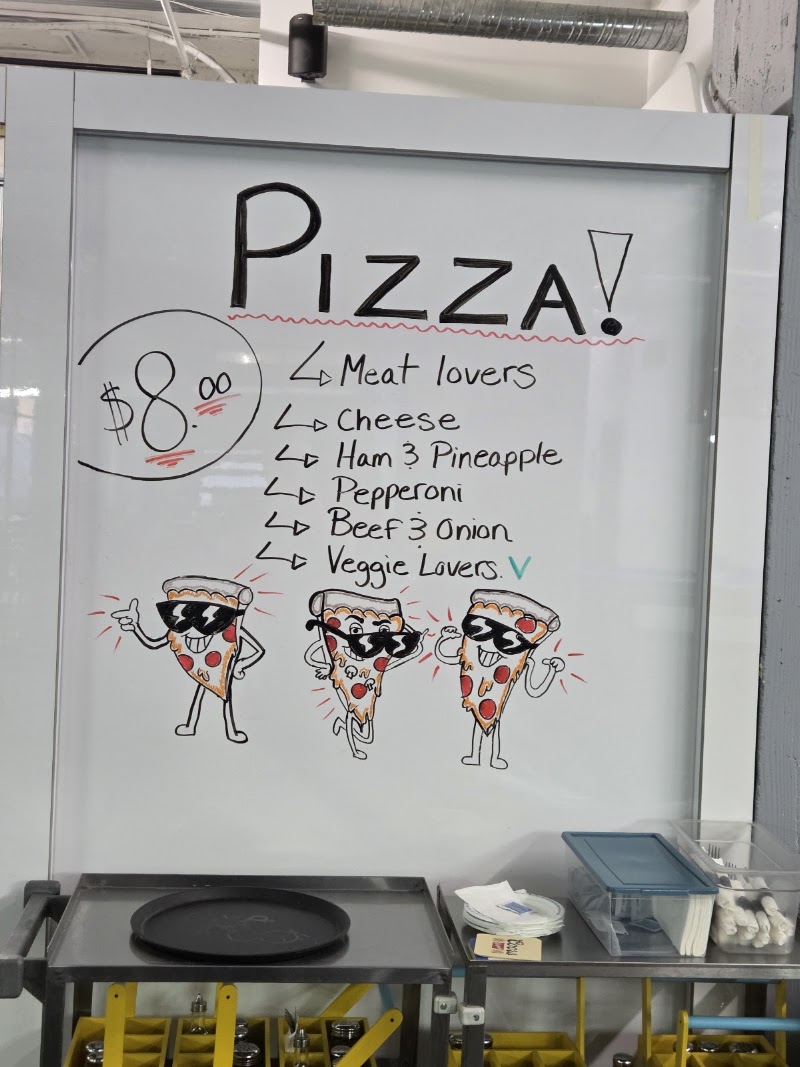 PIZZA!
$8.00
Meat lovers
Cheese
Ham & Pineapple
Pepperoni
Beef & Onion
Veggie Lovers. V